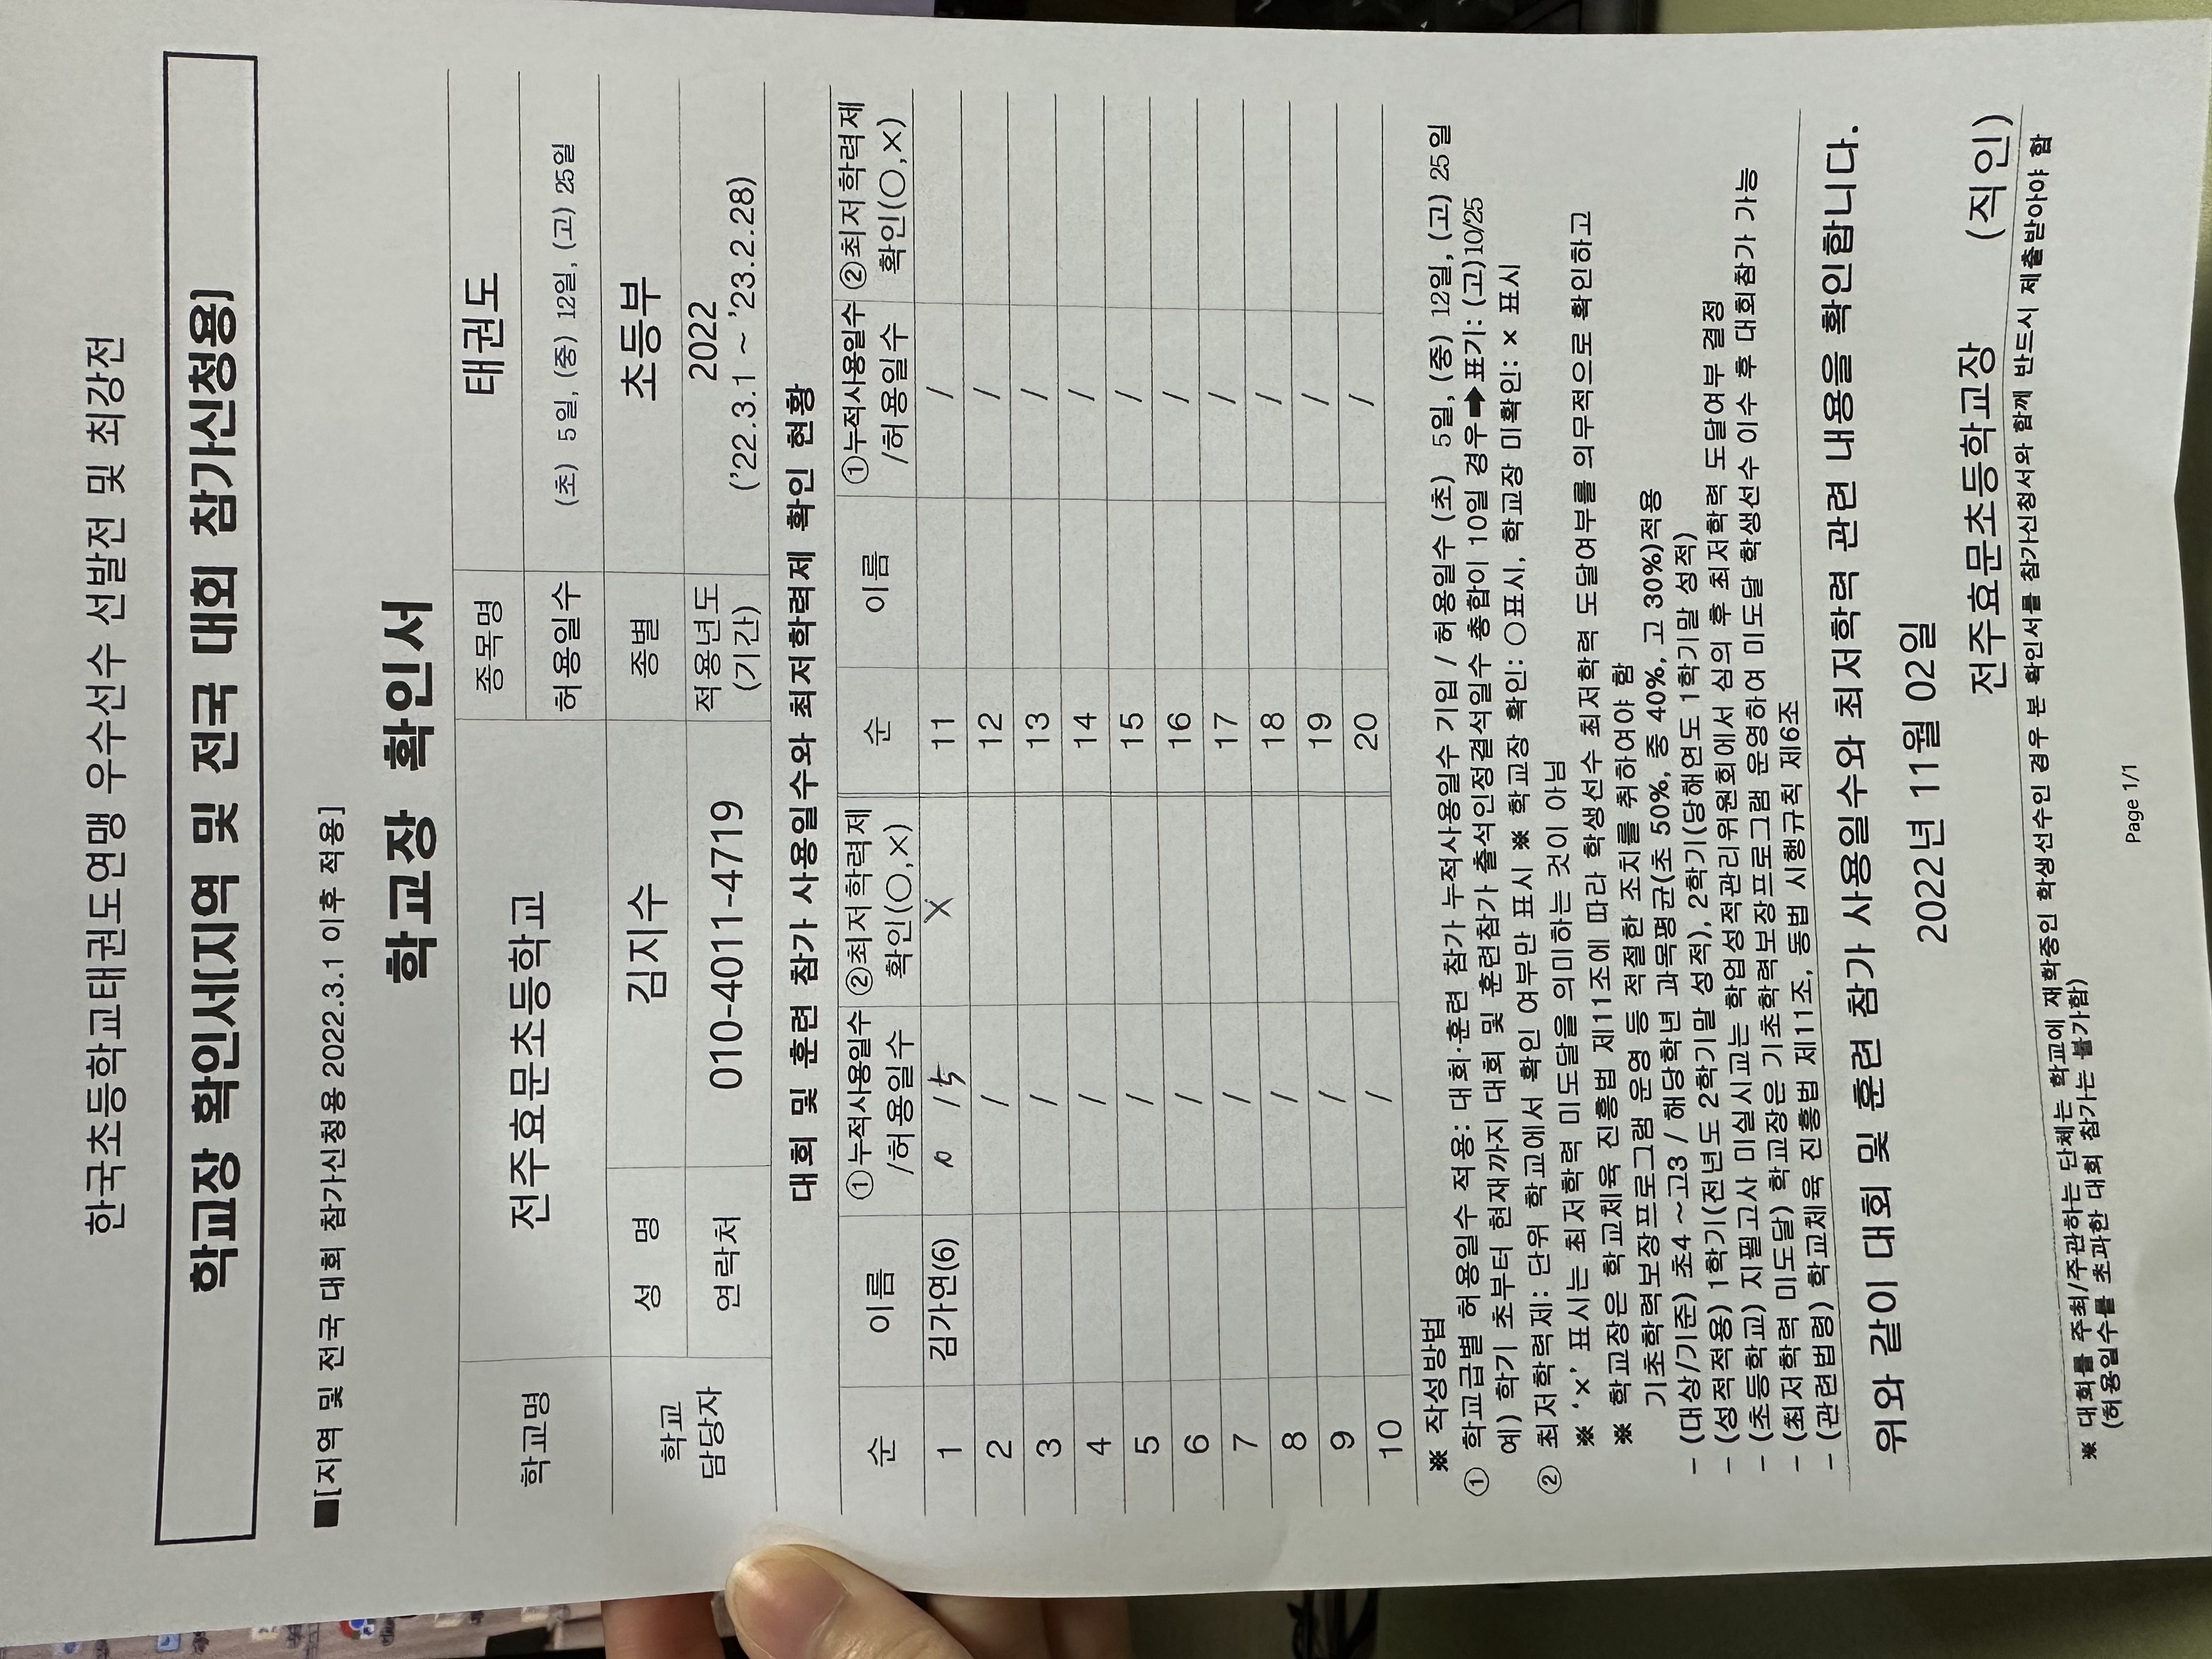 한국초등학교태권도연맹 우수선수 선발전 및 최강전
학교장 확인서[지역 및 전국 대회 참가신청용]
■[지역 및 전국 대회 참가신청용 2022.3.1 이후 적용]
학교장 확인서
학교명 전주효문초등학교 종목명 태권도
허용일수 (초) 5일, (중) 12일, (고) 25일
학교 담당자 성 명 김지수 종별 초등부
연락처 010-4011-4719 적용년도 (기간) 2022 ('22.3.1 ~ '23.2.28)
대회 및 훈련 참가 사용일수와 최저학력제 확인 현황
순 이름 ①누적사용일수 /허용일수 ②최저학력제 확인(○,×) 순 이름 ①누적사용일수 /허용일수 ②최저학력제 확인(○,×)
1 김가연(6) 0 / 5 X 11 /
2 / 12 /
3 / 13 /
4 / 14 /
5 / 15 /
6 / 16 /
7 / 17 /
8 / 18 /
9 / 19 /
10 / 20 /
※ 작성방법
① 학교급별 허용일수 적용: 대회·훈련 참가 누적사용일수 기입 / 허용일수 (초) 5일, (중) 12일, (고) 25일
예) 학기 초부터 현재까지 대회 및 훈련참가 출석인정결석일수 총합이 10일 경우➡표기: (고)10/25
② 최저학력제: 단위 학교에서 확인 여부만 표시 ※ 학교장 확인: ○표시, 학교장 미확인: × 표시
※ '×' 표시는 최저학력 미도달을 의미하는 것이 아님
※ 학교장은 학교체육 진흥법 제11조에 따라 학생선수 최저학력 도달여부를 의무적으로 확인하고
기초학력보장프로그램 운영 등 적절한 조치를 취하여야 함
- (대상/기준) 초4 ~고3 / 해당학년 과목평균(초 50%, 중 40%, 고 30%)적용
- (성적적용) 1학기(전년도 2학기말 성적), 2학기(당해연도 1학기말 성적)
- (초등학교) 지필고사 미실시교는 학업성적관리위원회에서 심의 후 최저학력 도달여부 결정
- (최저학력 미도달) 학교장은 기초학력보장프로그램 운영하여 미도달 학생선수 이수 후 대회참가 가능
- (관련법령) 학교체육 진흥법 제11조, 동법 시행규칙 제6조
위와 같이 대회 및 훈련 참가 사용일수와 최저학력 관련 내용을 확인합니다.
2022년 11월 02일
전주효문초등학교장 (직인)
※ 대회를 주최/주관하는 단체는 학교에 재학중인 학생선수인 경우 본 확인서를 참가신청서와 함께 반드시 제출받아야 함
(허용일수를 초과한 대회 참가는 불가함)
Page 1/1